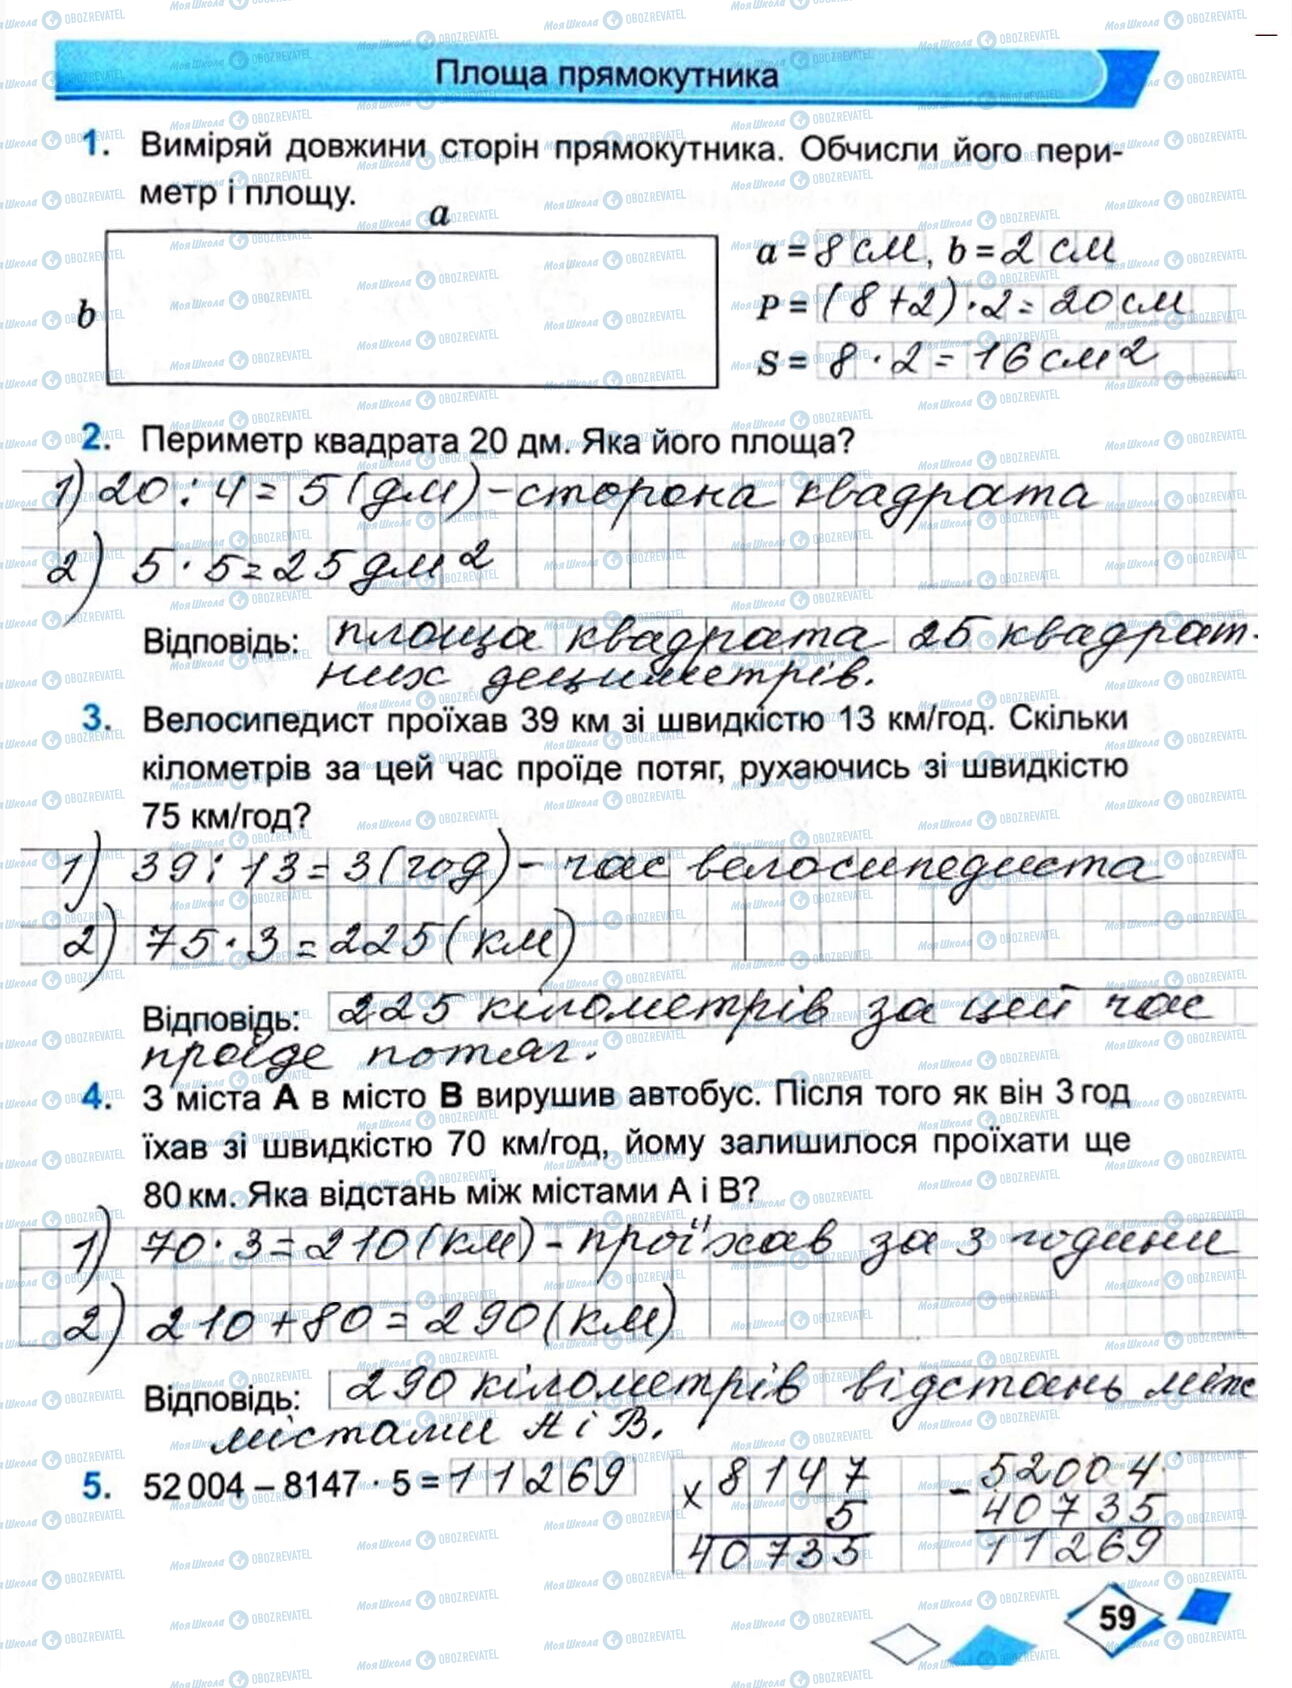 Площа прямокутника
1. Виміряй довжини сторін прямокутника. Обчисли його пери-
метр і площу.
a
b
a = 8 см, b = 2 см
P = (8+2)·2= 20 см
S = 8·2=16 см2
2. Периметр квадрата 20 дм. Яка його площа?
1) 20:4=5(дм)-сторона квадрата
2) 5·5=25 дм2
Відповідь: площа квадрата 25 квадрат-
них дециметрів.
3. Велосипедист проїхав 39 км зі швидкістю 13 км/год. Скільки
кілометрів за цей час проїде потяг, рухаючись зі швидкістю
75 км/год?
1) 39:13=3(год)-час велосипедиста
2) 75·3=225(км)
Відповідь: 225 кілометрів за цей час
проїде потяг.
4. З міста А в місто В вирушив автобус. Після того як він 3 год
їхав зі швидкістю 70 км/год, йому залишилося проїхати ще
80 км. Яка відстань між містами А і В?
1) 70·3=210(км)-проїхав за 3 години
2) 210+80=290(км)
Відповідь: 290 кілометрів відстань між
містами А і В.
5. 52 004 – 8147 · 5 = 11269
x 8147
5
40735
- 52004
40735
11269
59
МояШкола OBOZREVATEL